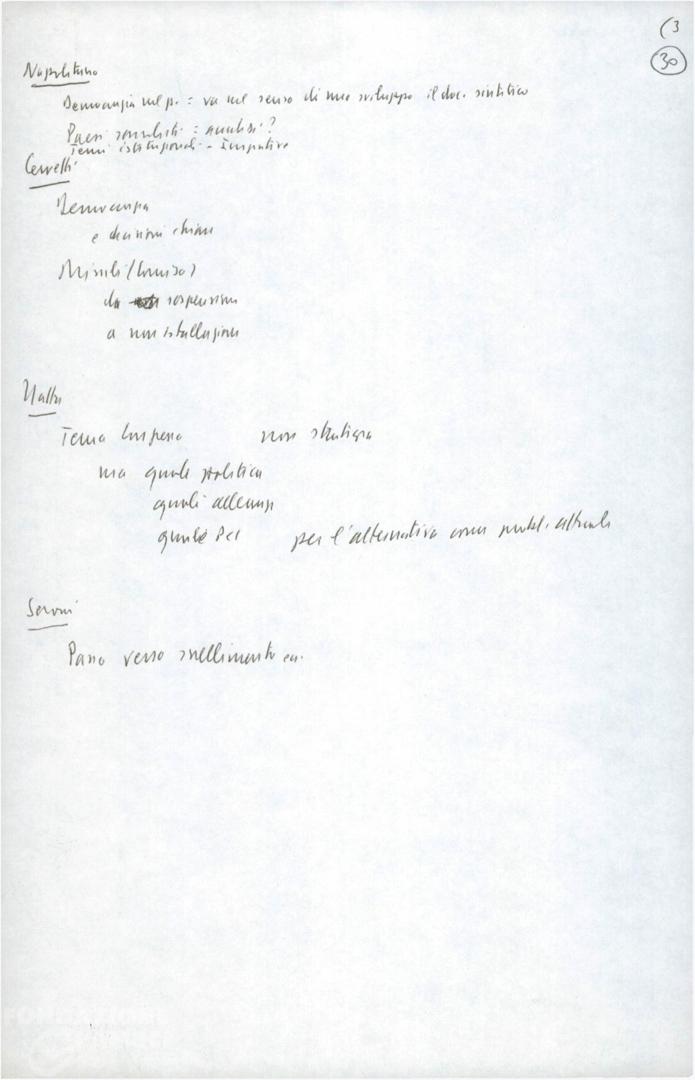 (3
30
Napolitano
Democrazia nel p. = va nel senso di uno sviluppo il doc. sintetico
Paesi socialisti = analisi?
Temi istituzionali - Imperativo
Cervetti
Democrazia
e decisioni chiare
Missili (Comiso)
da sospensione
a non istallazione
Natta
Tema Impresa non strategia
ma quale politica
quali alleanze
quale PCI per l'alternativa come probl. attuale
Seroni
Passo verso snellimento ecc.